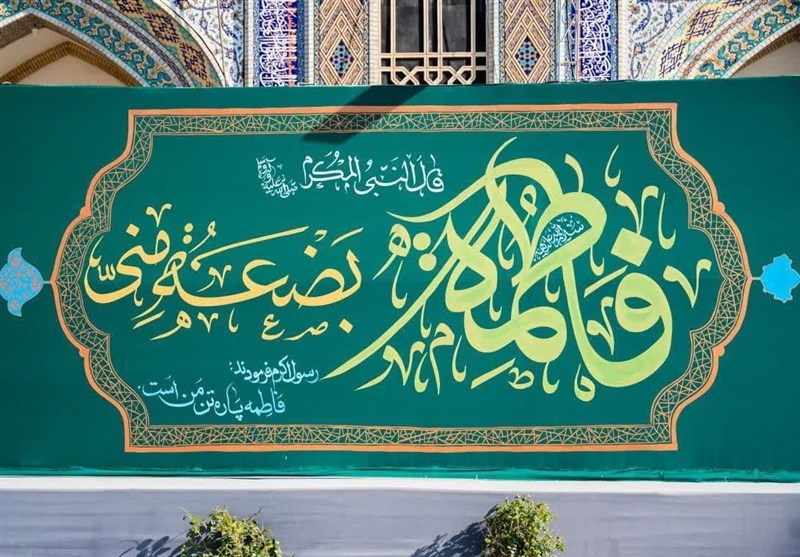 قال النبی المکرم صلی الله علیه و آله
فاطمة سلام الله علیها بضعة منی
رسول اکرم فرمودند:
فاطمه پاره تن من است.